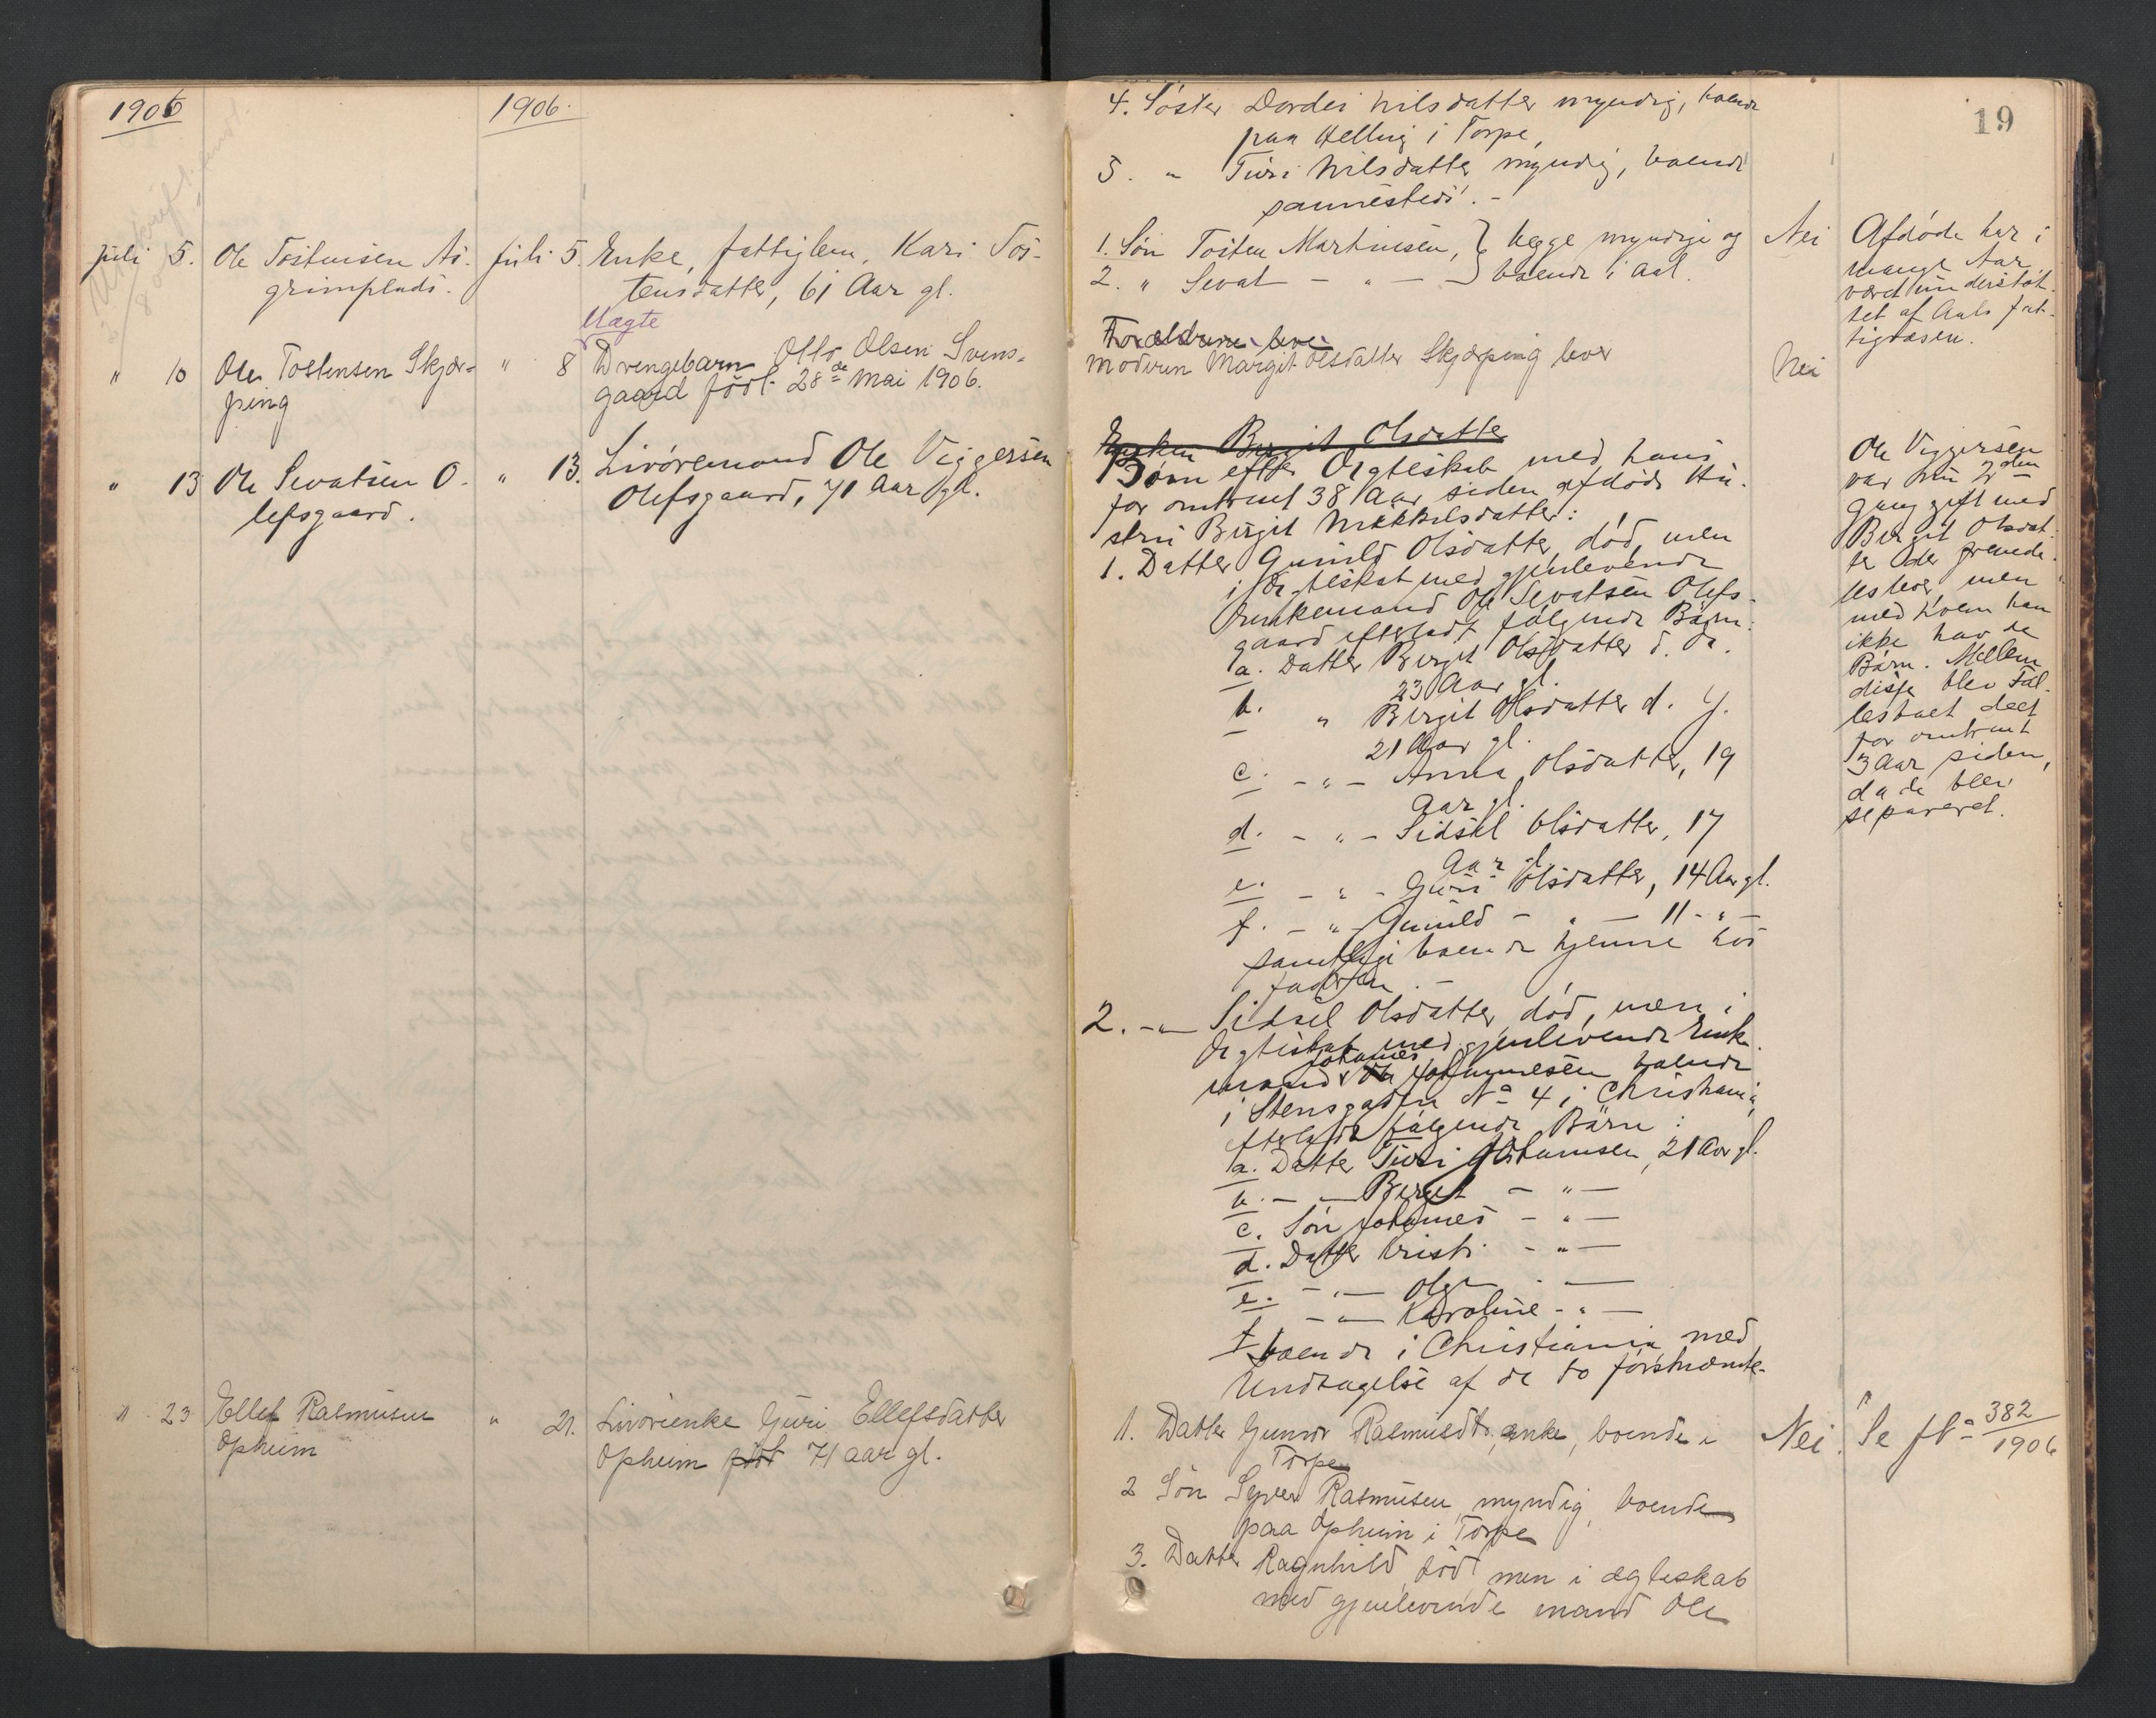 1906
1906.
Juli 5. Ole Tostensen As-
grimplads.
Juli 5. Enke, fattiglem, Kari Tos-
tensdatter, 61 Aar gl.
" 10 Ole Tostensen Skjær-
ping
Uægte
" 8 Drengebarn Otto Olsen Svens-
gaard født 28de Mai 1906.
" 13 Ole Sevatsen O-
lefsgaard.
" 13. Livøremand Ole Viggersen
Olefsgaard, 71 Aar gl.
" 23 Ellef Rasmusen
Opheim
" 21. Livørienke Guri Ellefsdatter
Opheim født 71 aar gl.
19
4. Søster Dordei Nilsdatter myndig, boende
paa Helling i Torpe,
5. " Turi Nilsdatter myndig, boende
sammesteds. -
1. Søn Tosten Martinsen, } begge myndige og
2. " Sevat - " - } boende i Aal.
Nei
Afdøde har i
mange Aar
været understøt-
tet af Aals fat-
tigvæsen.
Forældrene leve
moderen Margit Olsdatter Skjærping lever
Nei
Enken Birgit Olsdatter
Børn efter Ægteskab med hans
for omtrent 38 Aar siden afdøde Hu-
stru Birgit Mikkelsdatter:
1. Datter Gunild Olsdatter, død, men
i Ægteskab med gjenlevende
Enkemand Ole Sevatsen Olefs-
gaard efterladt følgende Børn:
a. Datter Birgit Olsdatter d. æ.
23 Aar gl.
b. " Birgit Olsdatter d. y.
21 Aar gl.
c. - " - Anna Olsdatter, 19
Aar gl.
d. - " - Sidsel Olsdatter, 17
Aar gl.
e. - " - Guri Olsdatter, 14 Aar gl.
f. - " - Gunild - " - 11 - " -
samtlige boende hjemme hos
faderen. -
2. - " - Sidsel Olsdatter, død, men i
Ægteskab med gjenlevende Enke-
Johannes
mand Ole Johannesen boende
i Stensgaden No 4 i Christiania,
efterladt følgende Børn:
a. Datter Turi Johannsen, 21 Aar gl.
b. - " - Birgit - " -
c. Søn Johannes - " -
d. Datter Kristi - " -
e. - " - Olga - " -
f. - " - Karoline - " -
boende i Christiania med
Undtagelse af de to førstnævnte.
Ole Viggersen
var nu 2den
Gang gift med
Birgit Olsdat-
ter der fremde-
les lever, men
med hvem han
ikke havde
Børn. Mellem
disse blev Fæl-
lesboet delt
for omtrent
3 Aar siden,
da de blev
separeret.
1. Datter Gunvor Rasmusdtr, enke, boende i
Torpe
Nei.
Se No 382/1906
2 Søn Syver Rasmusen, myndig, boende
paa Opheim i Torpe
3. Datter Ragnhild, død men i ægteskab
med gjenlevende mand Ole